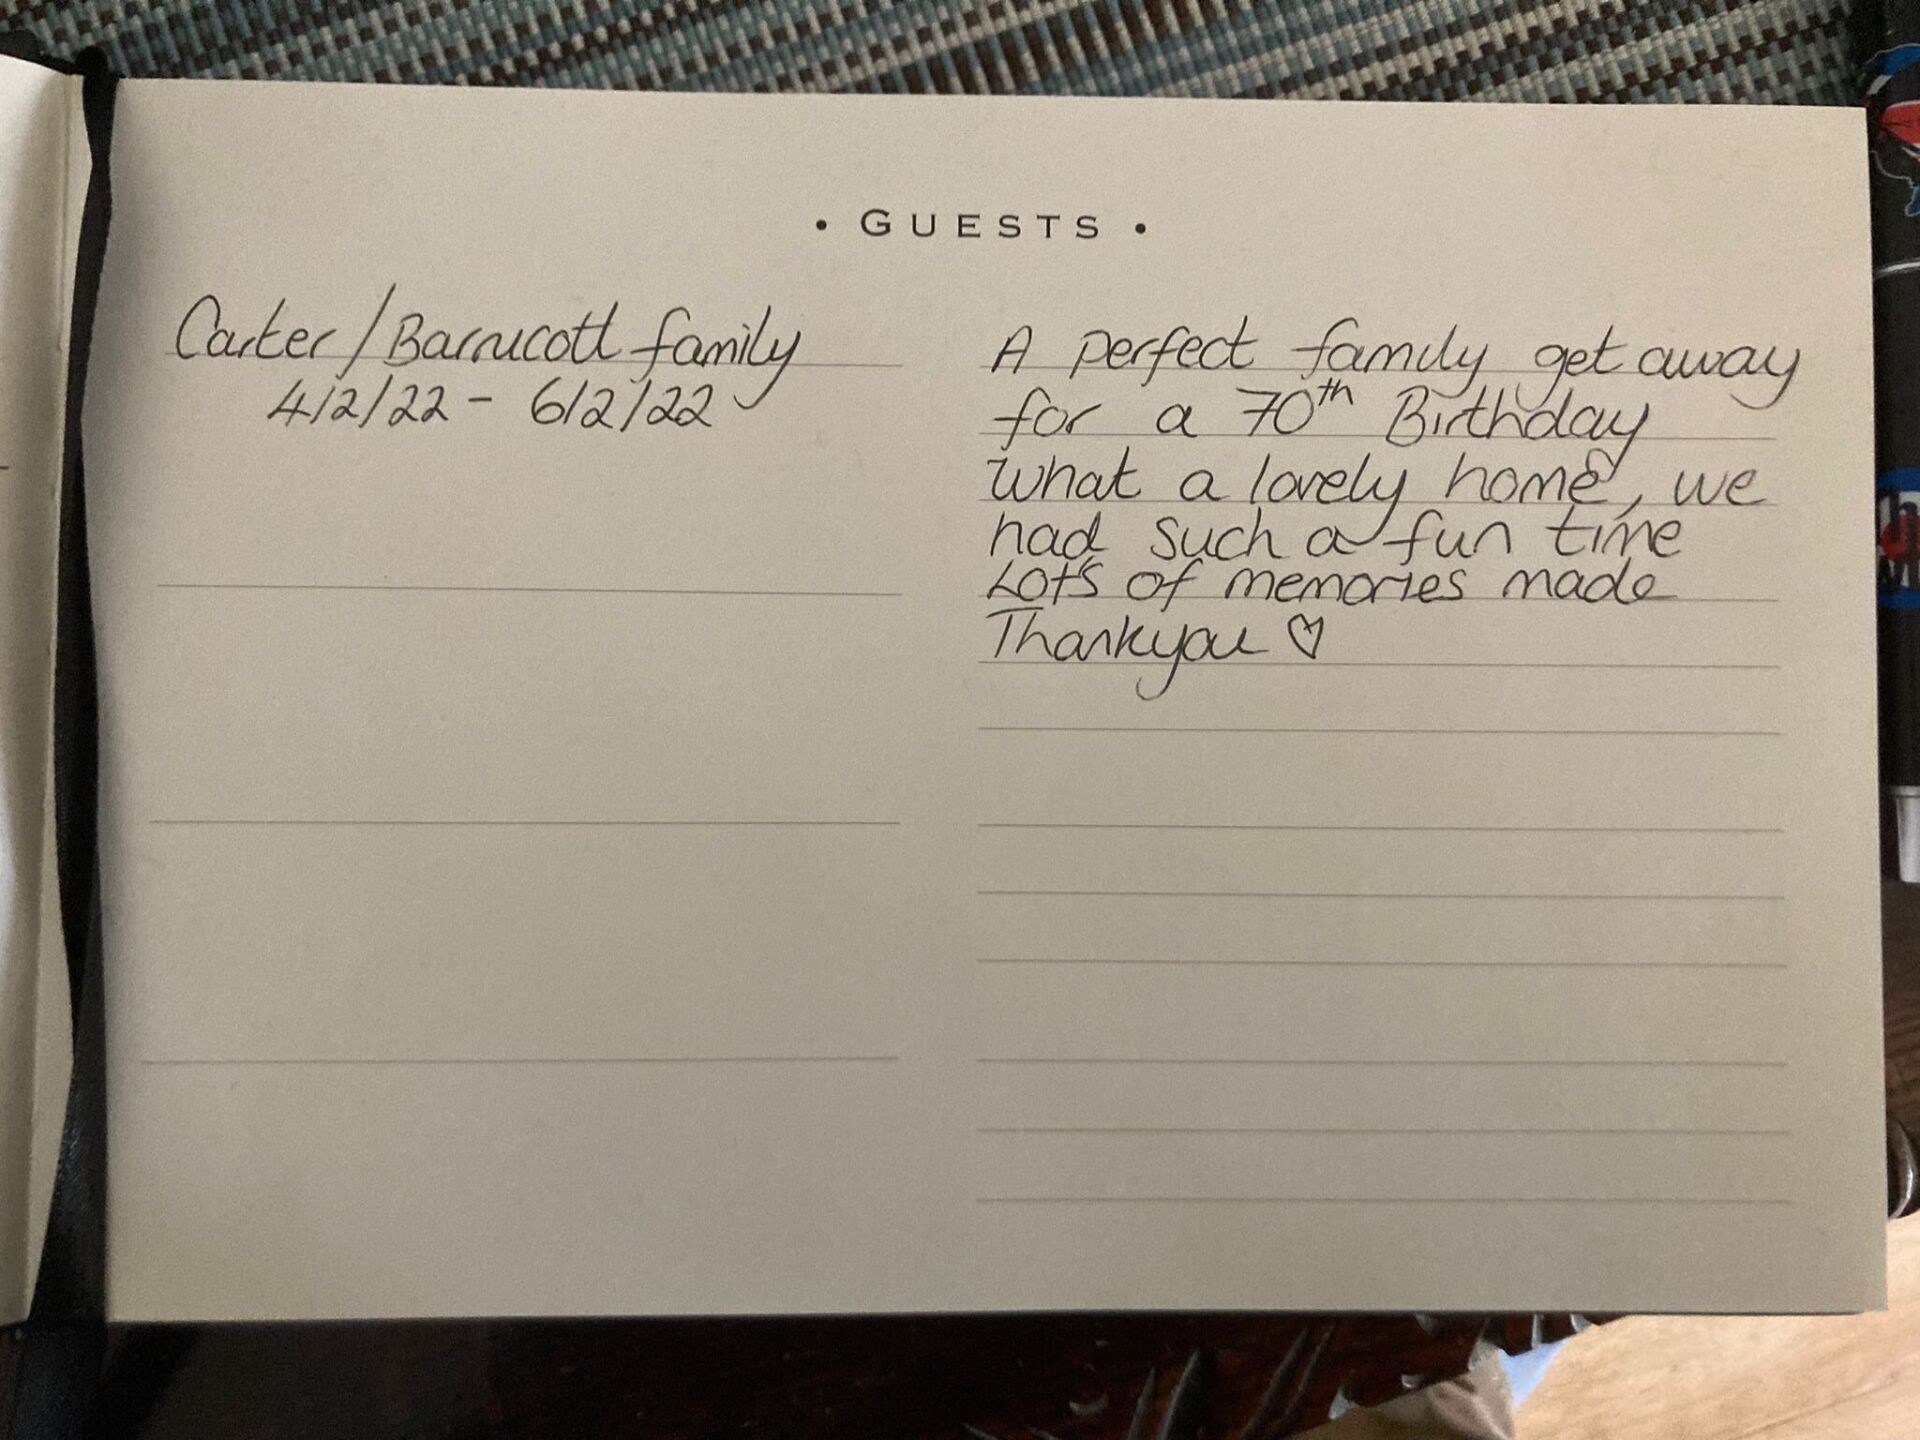 • GUESTS •
Carter / Barnicott family
4/2/22 - 6/2/22
A perfect family get away
for a 70th Birthday
what a lovely home, we
had such a fun time
Lots of memories made
Thankyou ♡